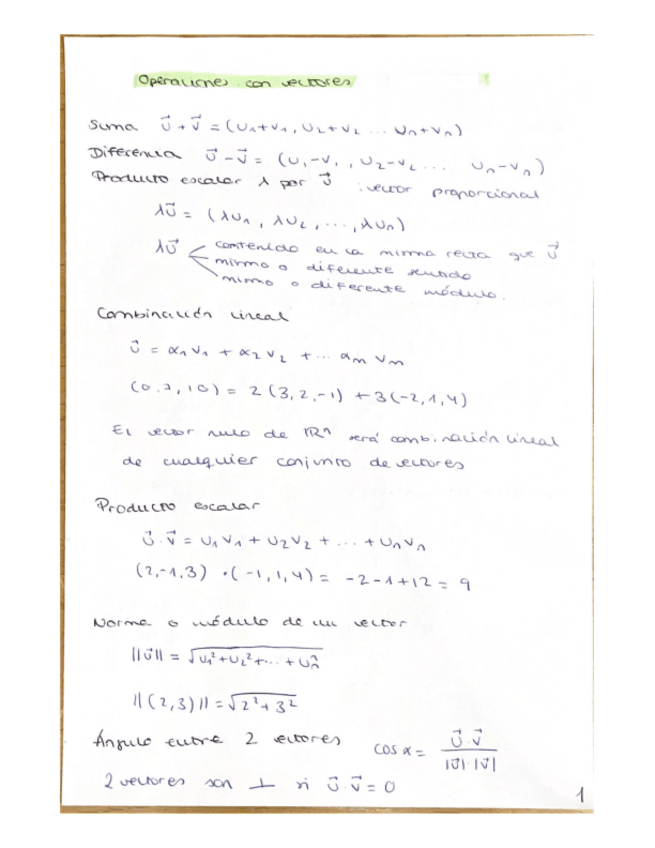 Operaciones con vectores
Suma u⃗ + v⃗ = (u1+v1, u2+v2 ... un+vn)
Diferencia u⃗ - v⃗ = (u1-v1, u2-v2 ... un-vn)
Producto escalar λ por v⃗ : vector proporcional
λu⃗ = (λu1, λu2, ..., λun)
λu⃗ < contenido en la misma recta que u⃗
mismo o diferente sentido
mismo o diferente módulo.
Combinación lineal
u⃗ = α1 v1 + α2 v2 + ... αm vm
(0,7,10) = 2(3,2,-1) + 3(-2,1,4)
El vector nulo de ℝn será combinación lineal
de cualquier conjunto de vectores
Producto escalar
u⃗ · v⃗ = u1v1 + u2v2 + ... + unvn
(2,-1,3) · (-1,1,4) = -2-1+12 = 9
Norma o módulo de un vector
||u⃗|| = √u1²+u2²+...+un²
||(2,3)|| = √2²+3²
Ángulo entre 2 vectores cos α = u⃗·v⃗ / |u⃗|·|v⃗|
2 vectores son ⊥ si u⃗·v⃗ = 0
1